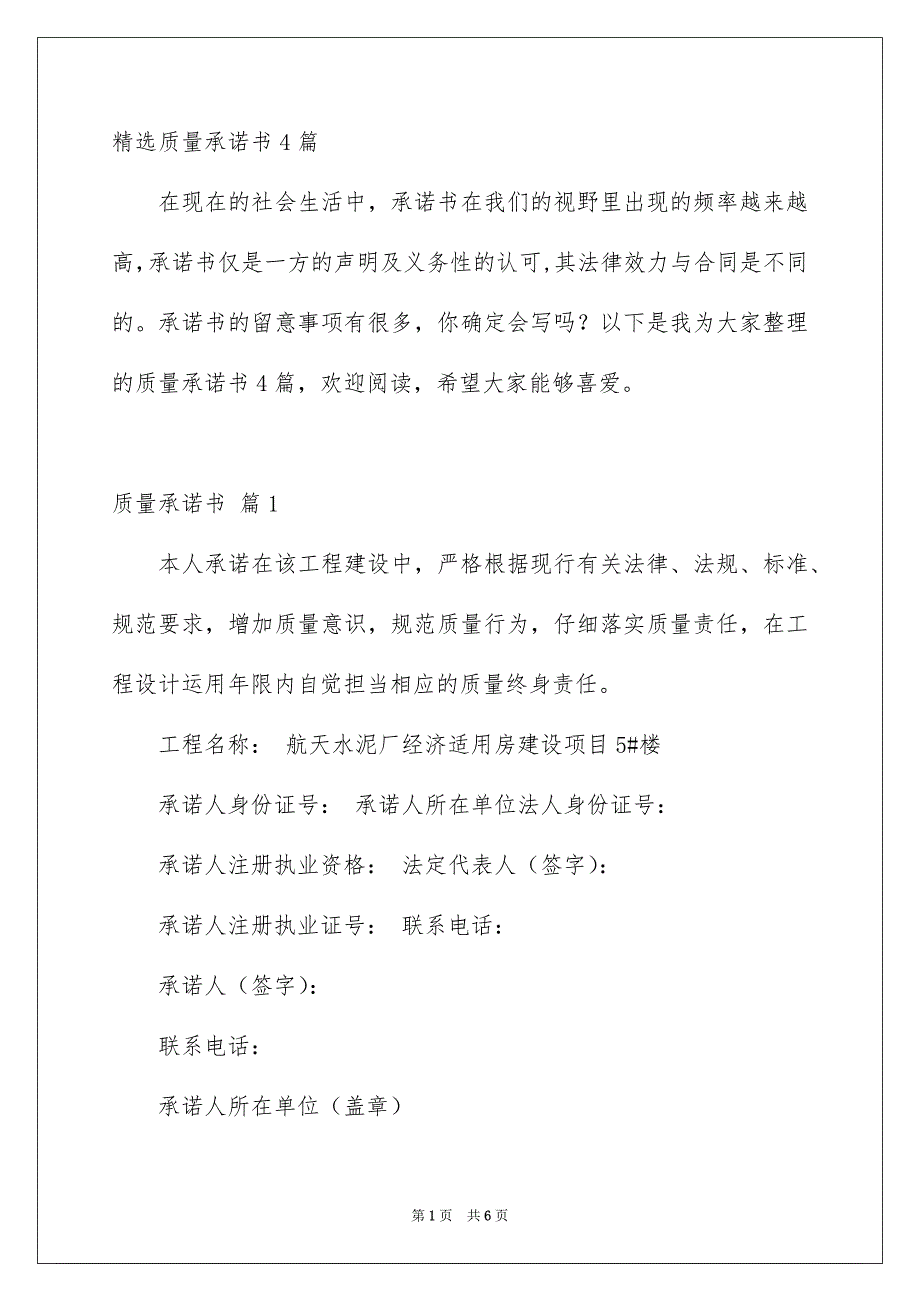 精选质量承诺书 4 篇
在现在的社会生活中，承诺书在我们的视野里出现的频率越来越
高,承诺书仅是一方的声明及义务性的认可,其法律效力与合同是不同
的。承诺书的留意事项有很多，你确定会写吗？以下是我为大家整理
的质量承诺书 4 篇，欢迎阅读，希望大家能够喜爱。
质量承诺书 篇 1
本人承诺在该工程建设中，严格根据现行有关法律、法规、标准、
规范要求，增加质量意识，规范质量行为，仔细落实质量责任，在工
程设计运用年限内自觉担当相应的质量终身责任。
工程名称： 航天水泥厂经济适用房建设项目 5#楼
承诺人身份证号： 承诺人所在单位法人身份证号：
承诺人注册执业资格： 法定代表人（签字）：
承诺人注册执业证号： 联系电话：
承诺人（签字）：
联系电话：
承诺人所在单位（盖章）
第 1 页 共 6 页